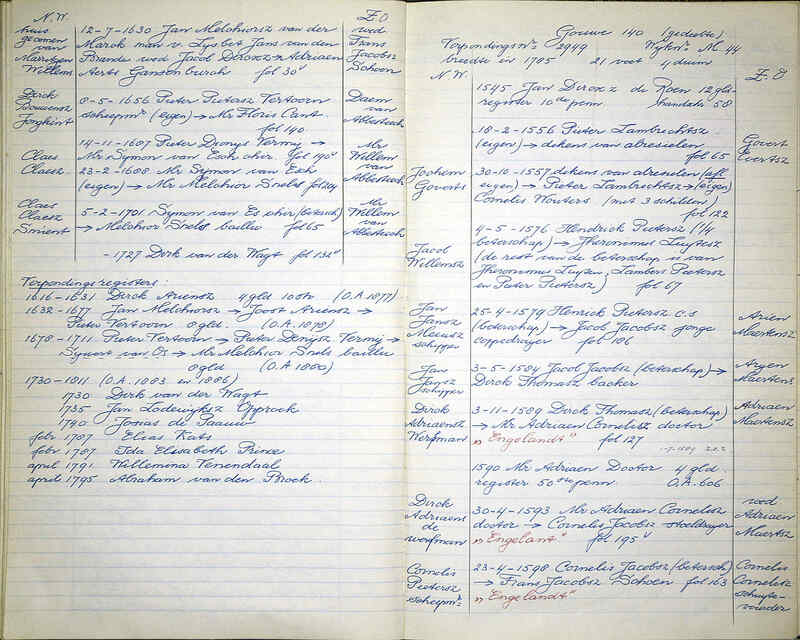 N.W.
Z.O
huis
genomen
van
Marritgen
Willems
12-7-1630 Jan Melchiorsz van der
Marck man v. Lysbet Jans van den
Brande wed Jacob Dircxz → Adriaen
Aerts Gansenburch fol 30v
wed
Frans
Jacobsz
Schoon
Dirck
Jongkint
8-5-1656 Pieter Pietersz Tertoorn
scheepmr (eigen) → Mr Floris Cant
fol 140
Daem
van
Abbesteech
Claes
Claesz
14-11-1607 Pieter Dionys Vermij →
Mr Symon van Esch chir. fol 190v
23-2-1608 Mr Symon van Esch
(eigen) → Mr Melchior Snels fol 204
Mr
Willem
van
Abbesteech
Claes
Claesz
Smient
5-2-1701 Symon van Es chir (betersch)
→ Melchior Snels bailiu fol 65
Mr
Willem
van
Abbesteech
- 1727 Dirk van der Wagt fol 132v
Verpondingsregisters:
1616-1631 Dirck Ariensz 4 gld 10 st (O.A. 1877)
1632-1677 Jan Melchiorsz → Joost Ariensz →
Pieter Tertoorn 0 gld. (O.A. 1878)
1678-1711 Pieter Tertoorn → Pieter Denijsz Vermij →
Symert van Os → Mr Melchior Snels bailiu
0 gld (O.A. 1880)
1730-1811 (O.A. 1883 en 1886)
1730 Dirk van der Wagt
1735 Jan Lodewijksz Opprock
1740 Josias de Paauw
febr 1787 Elias Kats
febr 1787 Ida Elisabeth Prince
april 1791 Willemina Venendaal
april 1795 Abraham van den Broek.
Gouwe 140 (gedeelte)
Verpondingsnr 2949 Wijknr M. 44
breedte in 1785 21 voet 4 duim
N.W.
Z.O
1545 Jan Dircxz de Roen 12 gld
register 10de penn. 58
18-2-1556 Pieter Lambrechtsz
(eigen) → dekens van alresielen
fol 65
Govert
Evertsz
Jochem
Goverts
30-10-1557 dekens van alresielen (afl
eigen) → Pieter Lambrechtsz → (eigen)
Cornelis Wouters (met 3 schilden)
fol 122
Jacob
Willemsz
4-5-1576 Hendrick Pietersz (1/4
beterschap) → Jheronimus Luytesz
(de rest van de beterschap is van
Jheronimus Luytesz, Lambert Pietersz
en Pieter Pietersz) fol 67
Jan
Jansz
Meeusz
schipper
25-4-1579 Henrick Pietersz c.s
(beterschap) → Jacob Jacobsz jonge
coppedrayer fol 186
Arien
Maertensz
Jan
Jansz
schipper
3-5-1584 Jacob Jacobsz (beterschap) →
Dirck Thomasz backer
Aryen
Maertens
Dirck
Adriaensz
Werfman
3-11-1589 Dirck Thomasz (beterschap)
→ Mr Adriaen Cornelisz doctor
"Engelandt" fol 127
Adriaen
Maertensz
1590 Mr Adriaen Doctor 4 gld.
register 50ste penn. O.A. 606
Dirck
Adriaens
de
werfman
30-4-1593 Mr Adriaen Cornelisz
doctor → Cornelis Jacobsz stoeldrayer
"Engelant" fol 195v
wed
Adriaen
Maertsz
Cornelis
Pietersz
scheepmr
23-4-1598 Cornelis Jacobsz (betersch)
→ Frans Jacobsz Schoen fol 163
"Engelandt"
Cornelis
Cornelisz
schuyte-
voerder